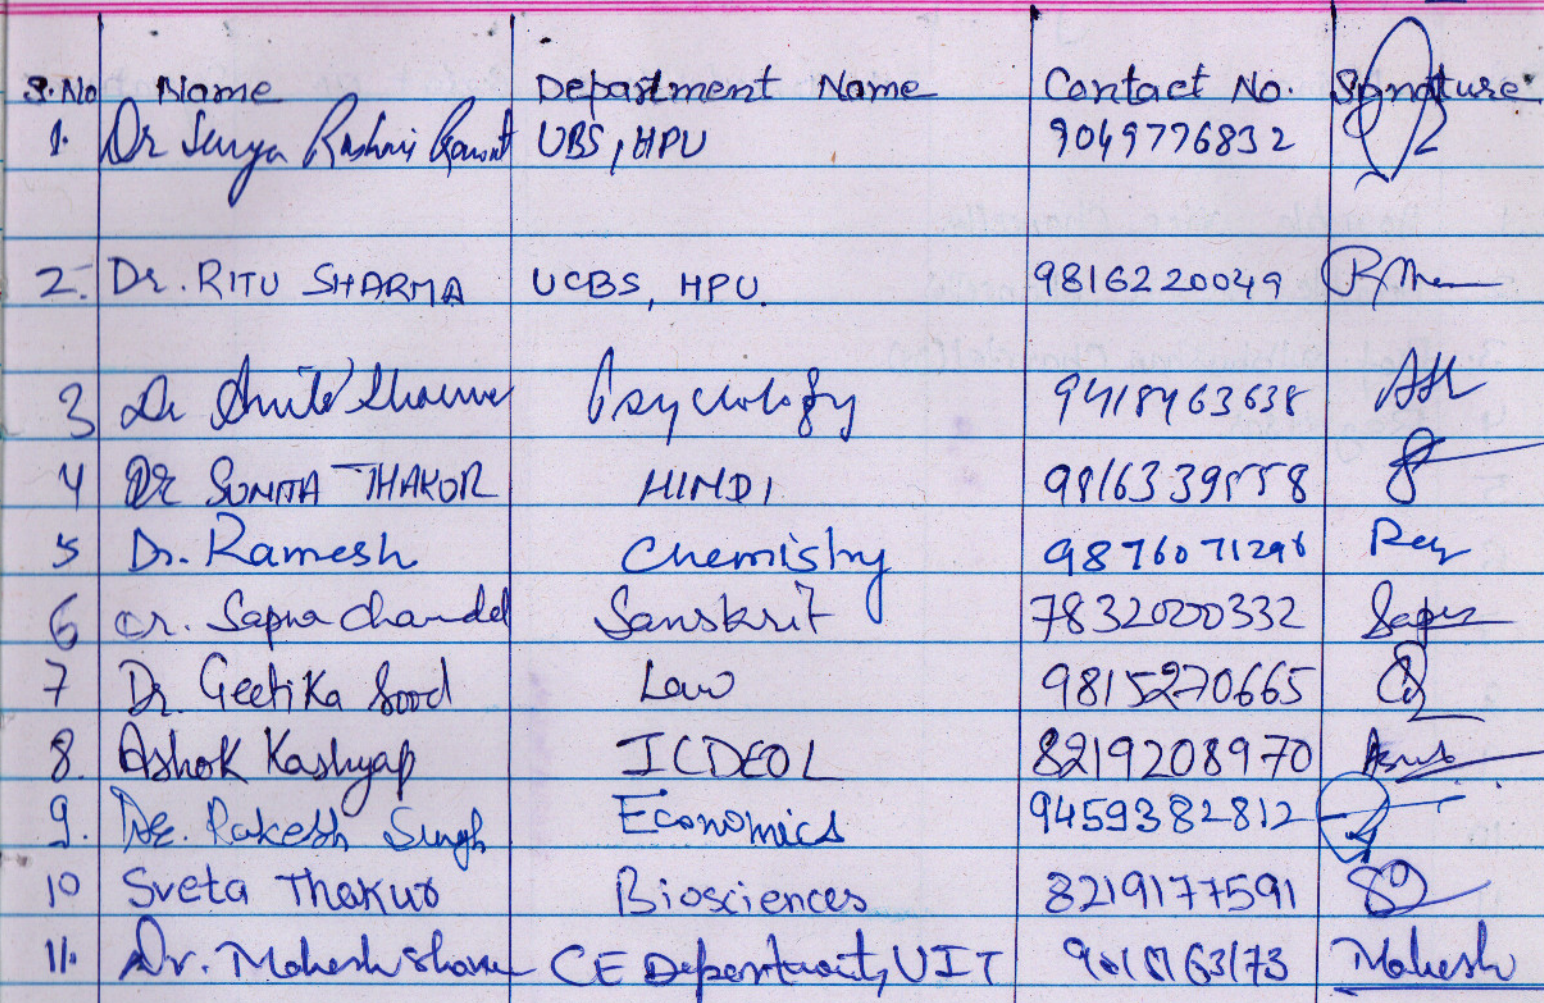 S.No Name Department Name Contact No. Signature
1. Dr Surya Rashmi Rawat UBS, HPU 9049776832
2. Dr. RITU SHARMA UCBS, HPU. 9816220049
3 Dr Anita Sharma Psychology 9418463638
4 Dr SUNITA THAKUR HINDI 9816339558
5 Dr. Ramesh Chemistry
6 Dr. Sapna Chandel Sanskrit 7832000332 Sapna
7 Dr. Geetika Sood Law 9815270665
8. Ashok Kashyap ICDEOL 8219208970
9. Dr. Rakesh Singh Economics 9459382812
10 Sveta Thakur Biosciences 8219177591
11. Dr. Mahesh Sharma CE Department, UIT Mahesh